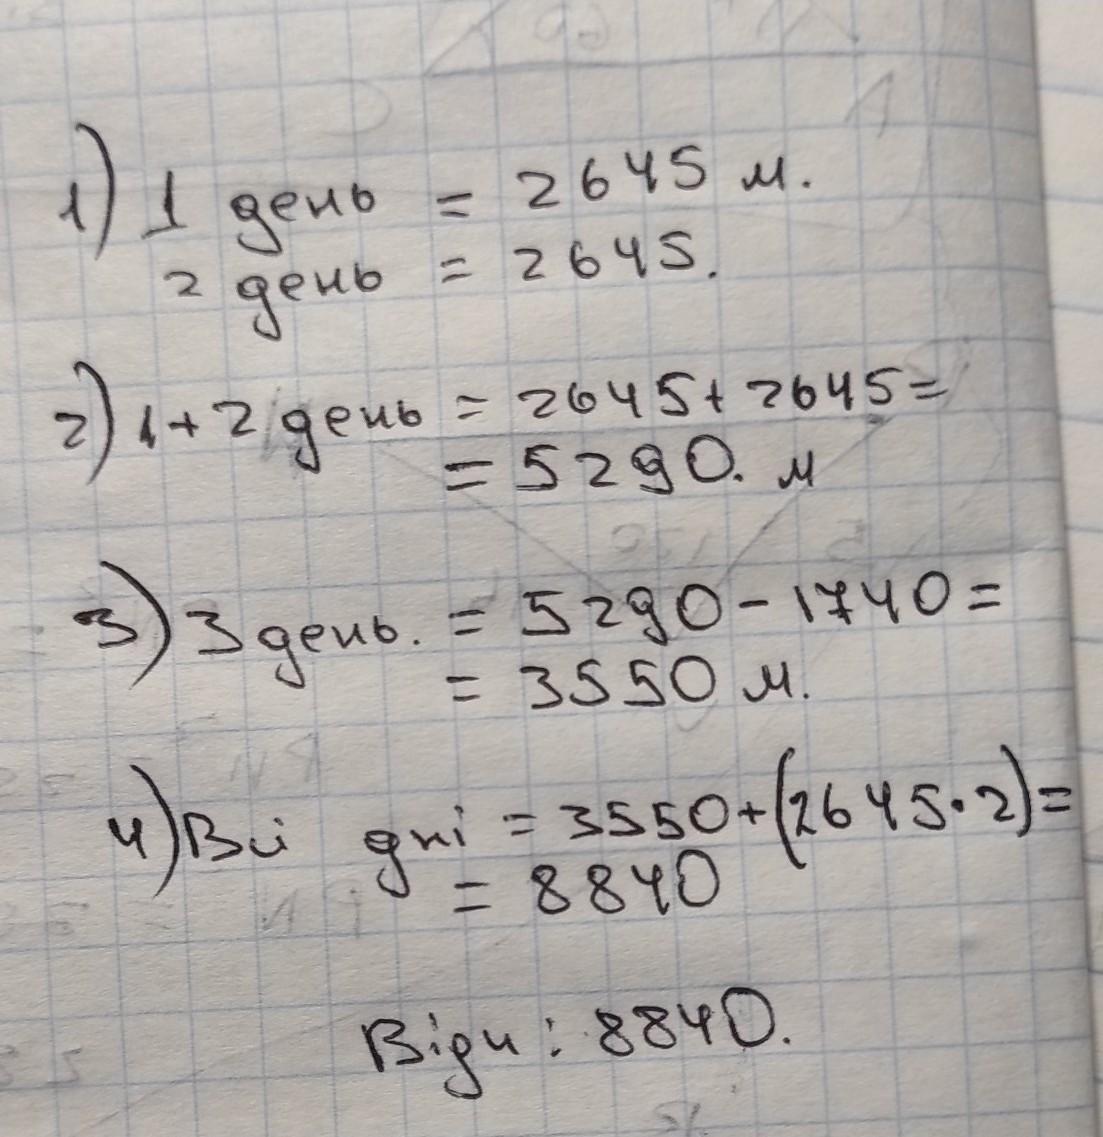 1) 1 день = 2645 м.
2 день = 2645.
2) 1+2 день = 2645+2645=
= 5290. м
3) 3 день. = 5290-1740=
= 3550 м.
4) Всі дні = 3550+(2645·2)=
= 8840
Відп: 8840.